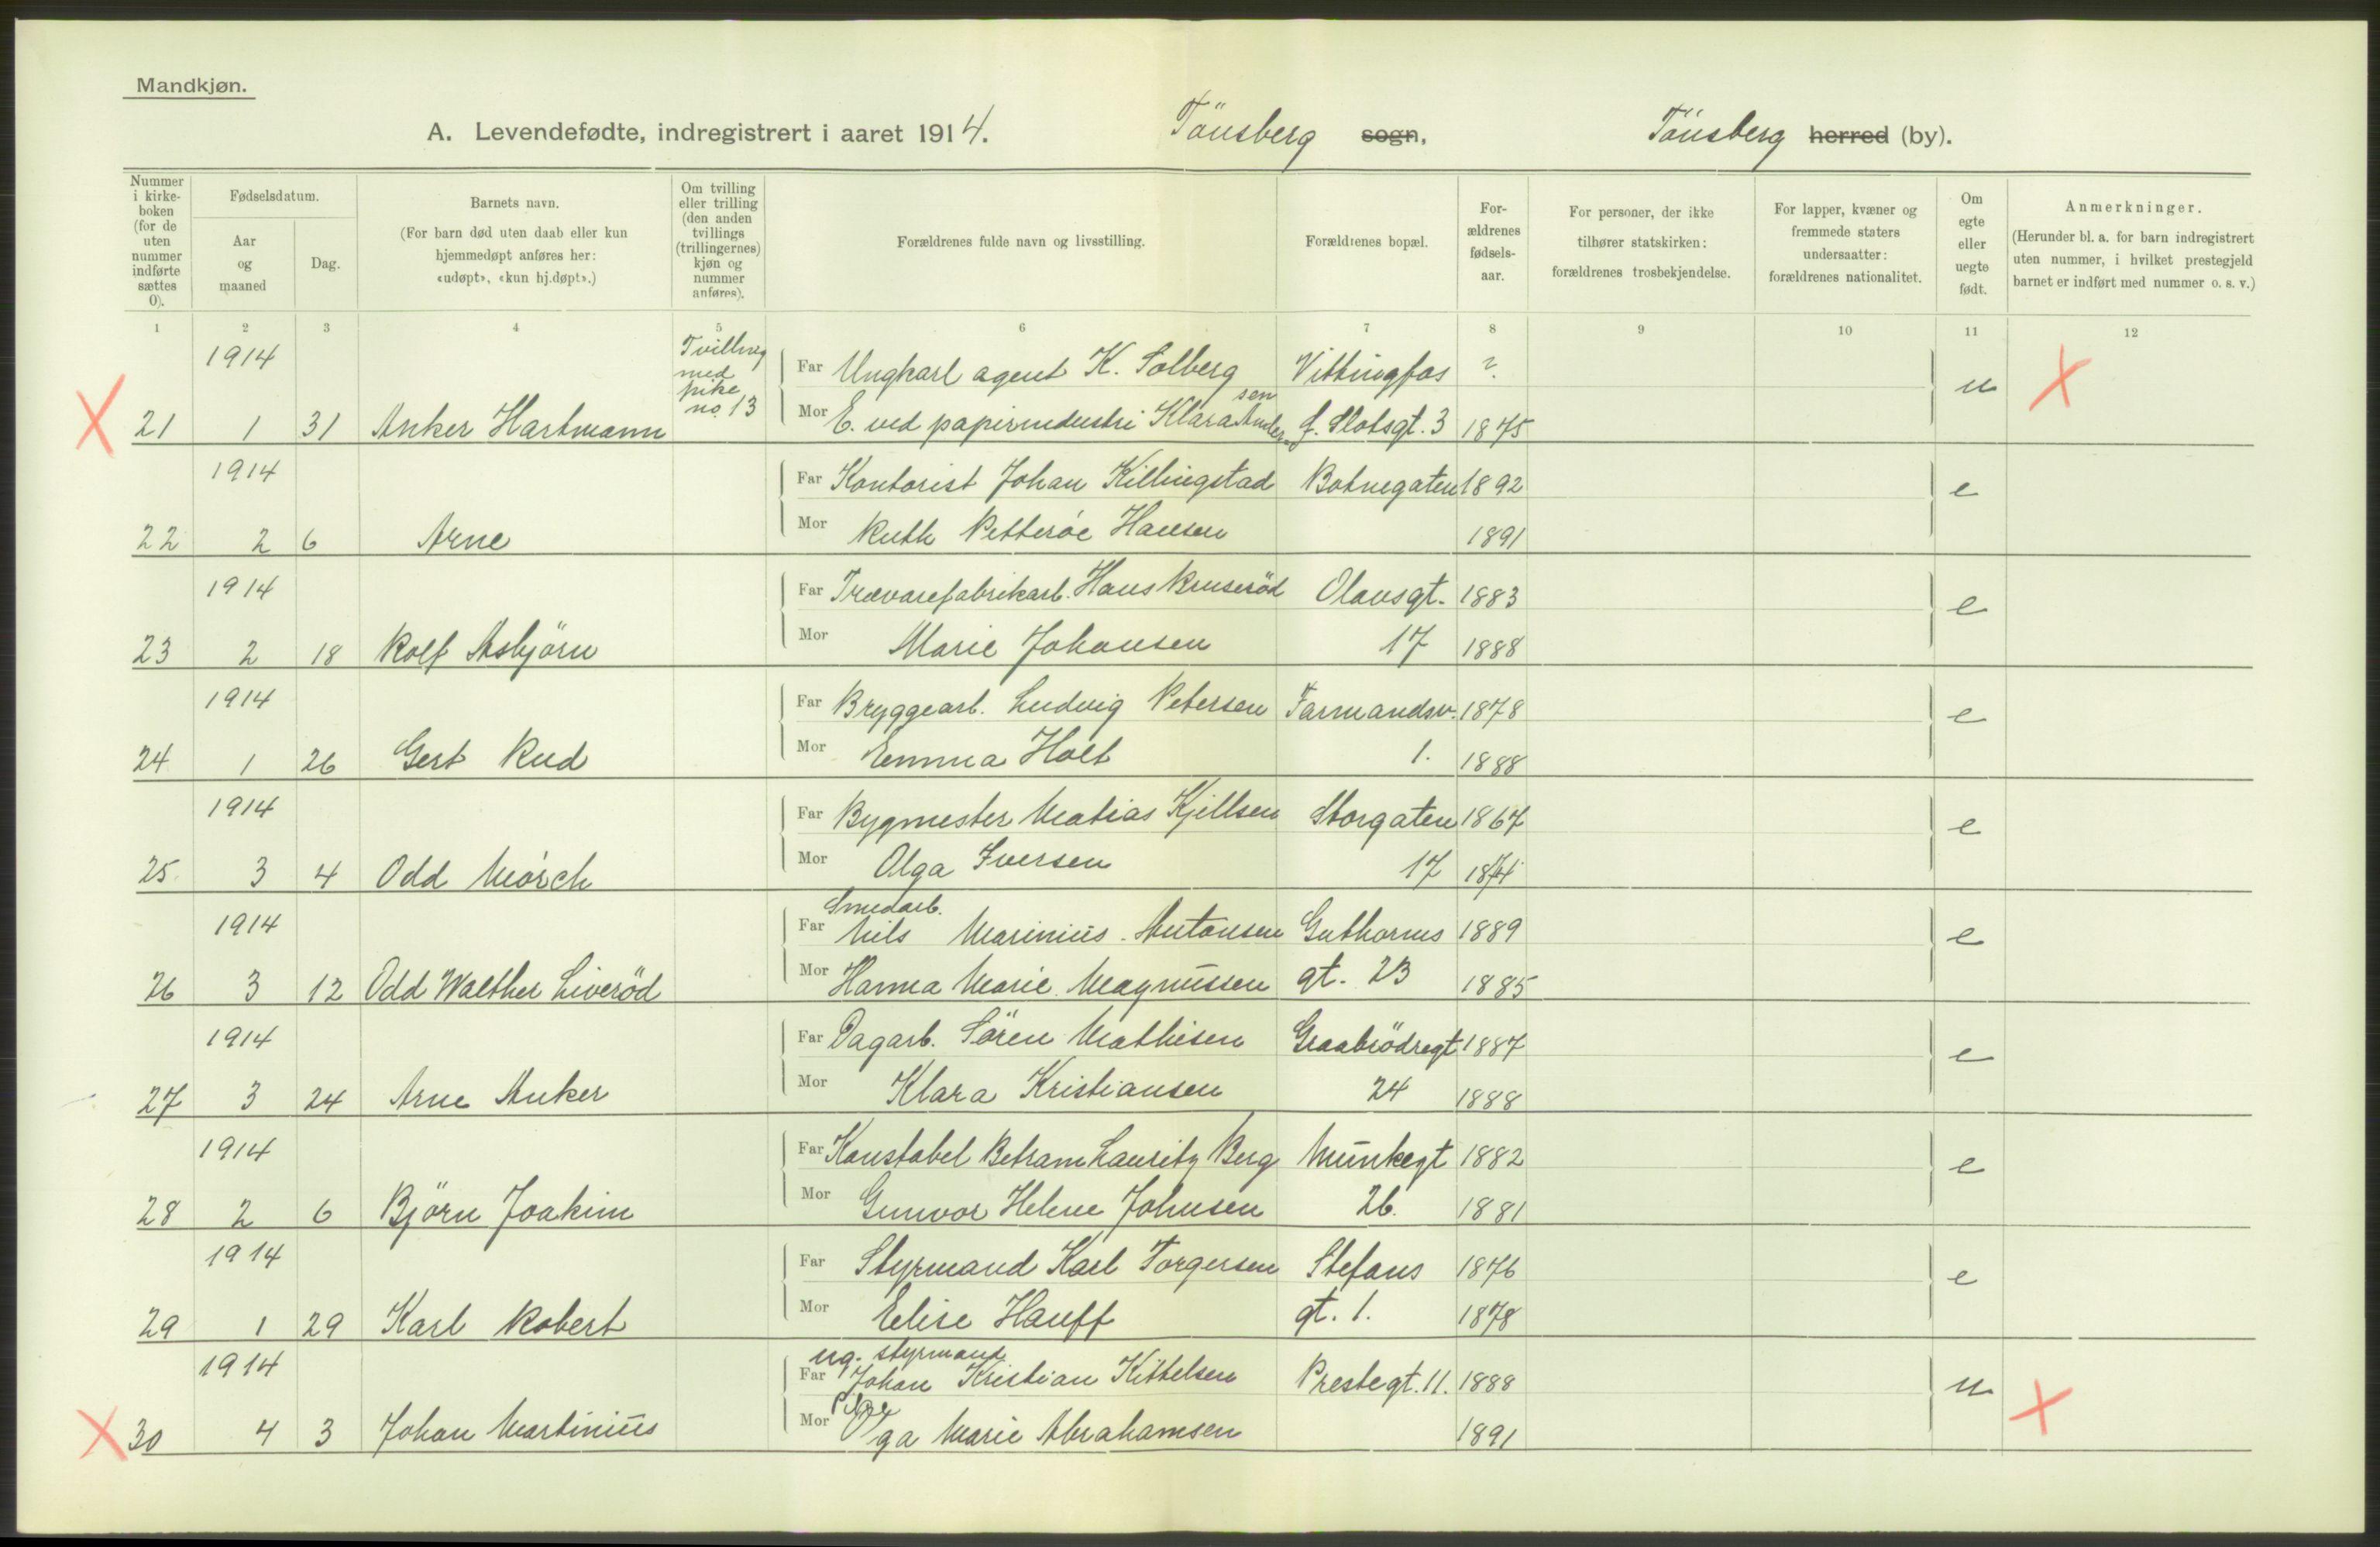 Mandkjøn.
A. Levendefødte, indregistrert i aaret 1914. Tönsberg sogn, Tönsberg herred (by).
Nummer i kirkeboken (for de uten nummer indførte sættes 0).
Fødselsdatum.
Aar og maaned
Dag.
Barnets navn.
(For barn død uten daab eller kun hjemmedøpt anføres her: «udøpt», «kun hj.døpt».)
Om tvilling eller trilling (den anden tvillings (trillingernes) kjøn og nummer anføres).
Forældrenes fulde navn og livsstilling.
Forældrenes bopæl.
Forældrenes fødselsaar.
For personer, der ikke tilhører statskirken: forældrenes trosbekjendelse.
For lapper, kvæner og fremmede staters undersaatter: forældrenes nationalitet.
Om egte eller uegte født.
Anmerkninger.
(Herunder bl. a. for barn indregistrert uten nummer, i hvilket prestegjeld barnet er indført med nummer o. s. v.)
1 2 3 4 5 6 7 8 9 10 11 12
1914 Tvilling med pike no. 13 Far Ungkarl agent K. Solberg Vittingfos ? u X
X 21 1 31 Anker Hartmann Mor E. ved papirindustri Klara Andersen f. Slotsgt. 3 1875
1914 Far Kontorist Johan Killingstad Botnegaten 1892 e
22 2 6 Arne Mor Ruth Petterøe Hansen 1891
1914 Far Trævarefabrikarb. Hans Bruserød Olavsgt. 1883 e
23 2 18 Rolf Asbjörn Mor Marie Johansen 17 1888
1914 Far Bryggearb. Ludvig Petersen Farmandsv. 1878 e
24 1 26 Gert Rud Mor Emma Holt 1. 1888
1914 Far Bygmester Matias Kjellsen Storgaten 1867 e
25 3 4 Odd Mørch Mor Olga Iversen 17 1874
1914 Smedarb. Far Nils Marinius Antonsen Guthorms 1889 e
26 3 12 Odd Walther Liveröd Mor Hanna Marie Magnussen gt. 23 1885
1914 Far Dagarb. Sören Mathisen Graabrödregt 1887 e
27 3 24 Arne Anker Mor Klara Kristiansen 24 1888
1914 Far Konstabel Betram Lauritz Berg Munkegt 1882 e
28 2 6 Björn Joakim Mor Gunvor Helene Johnsen 26. 1881
1914 Far Styrmand Karl Torgersen Stefans 1876 e
29 1 29 Karl Robert Mor Elise Hauff gt. 1. 1878
1914 ug. styrmand Far Johan Kristian Kittelsen Prestegt. 11. 1888 u X
X 30 4 3 Johan Martinius Mor Pige Marie Abrahamsen 1891